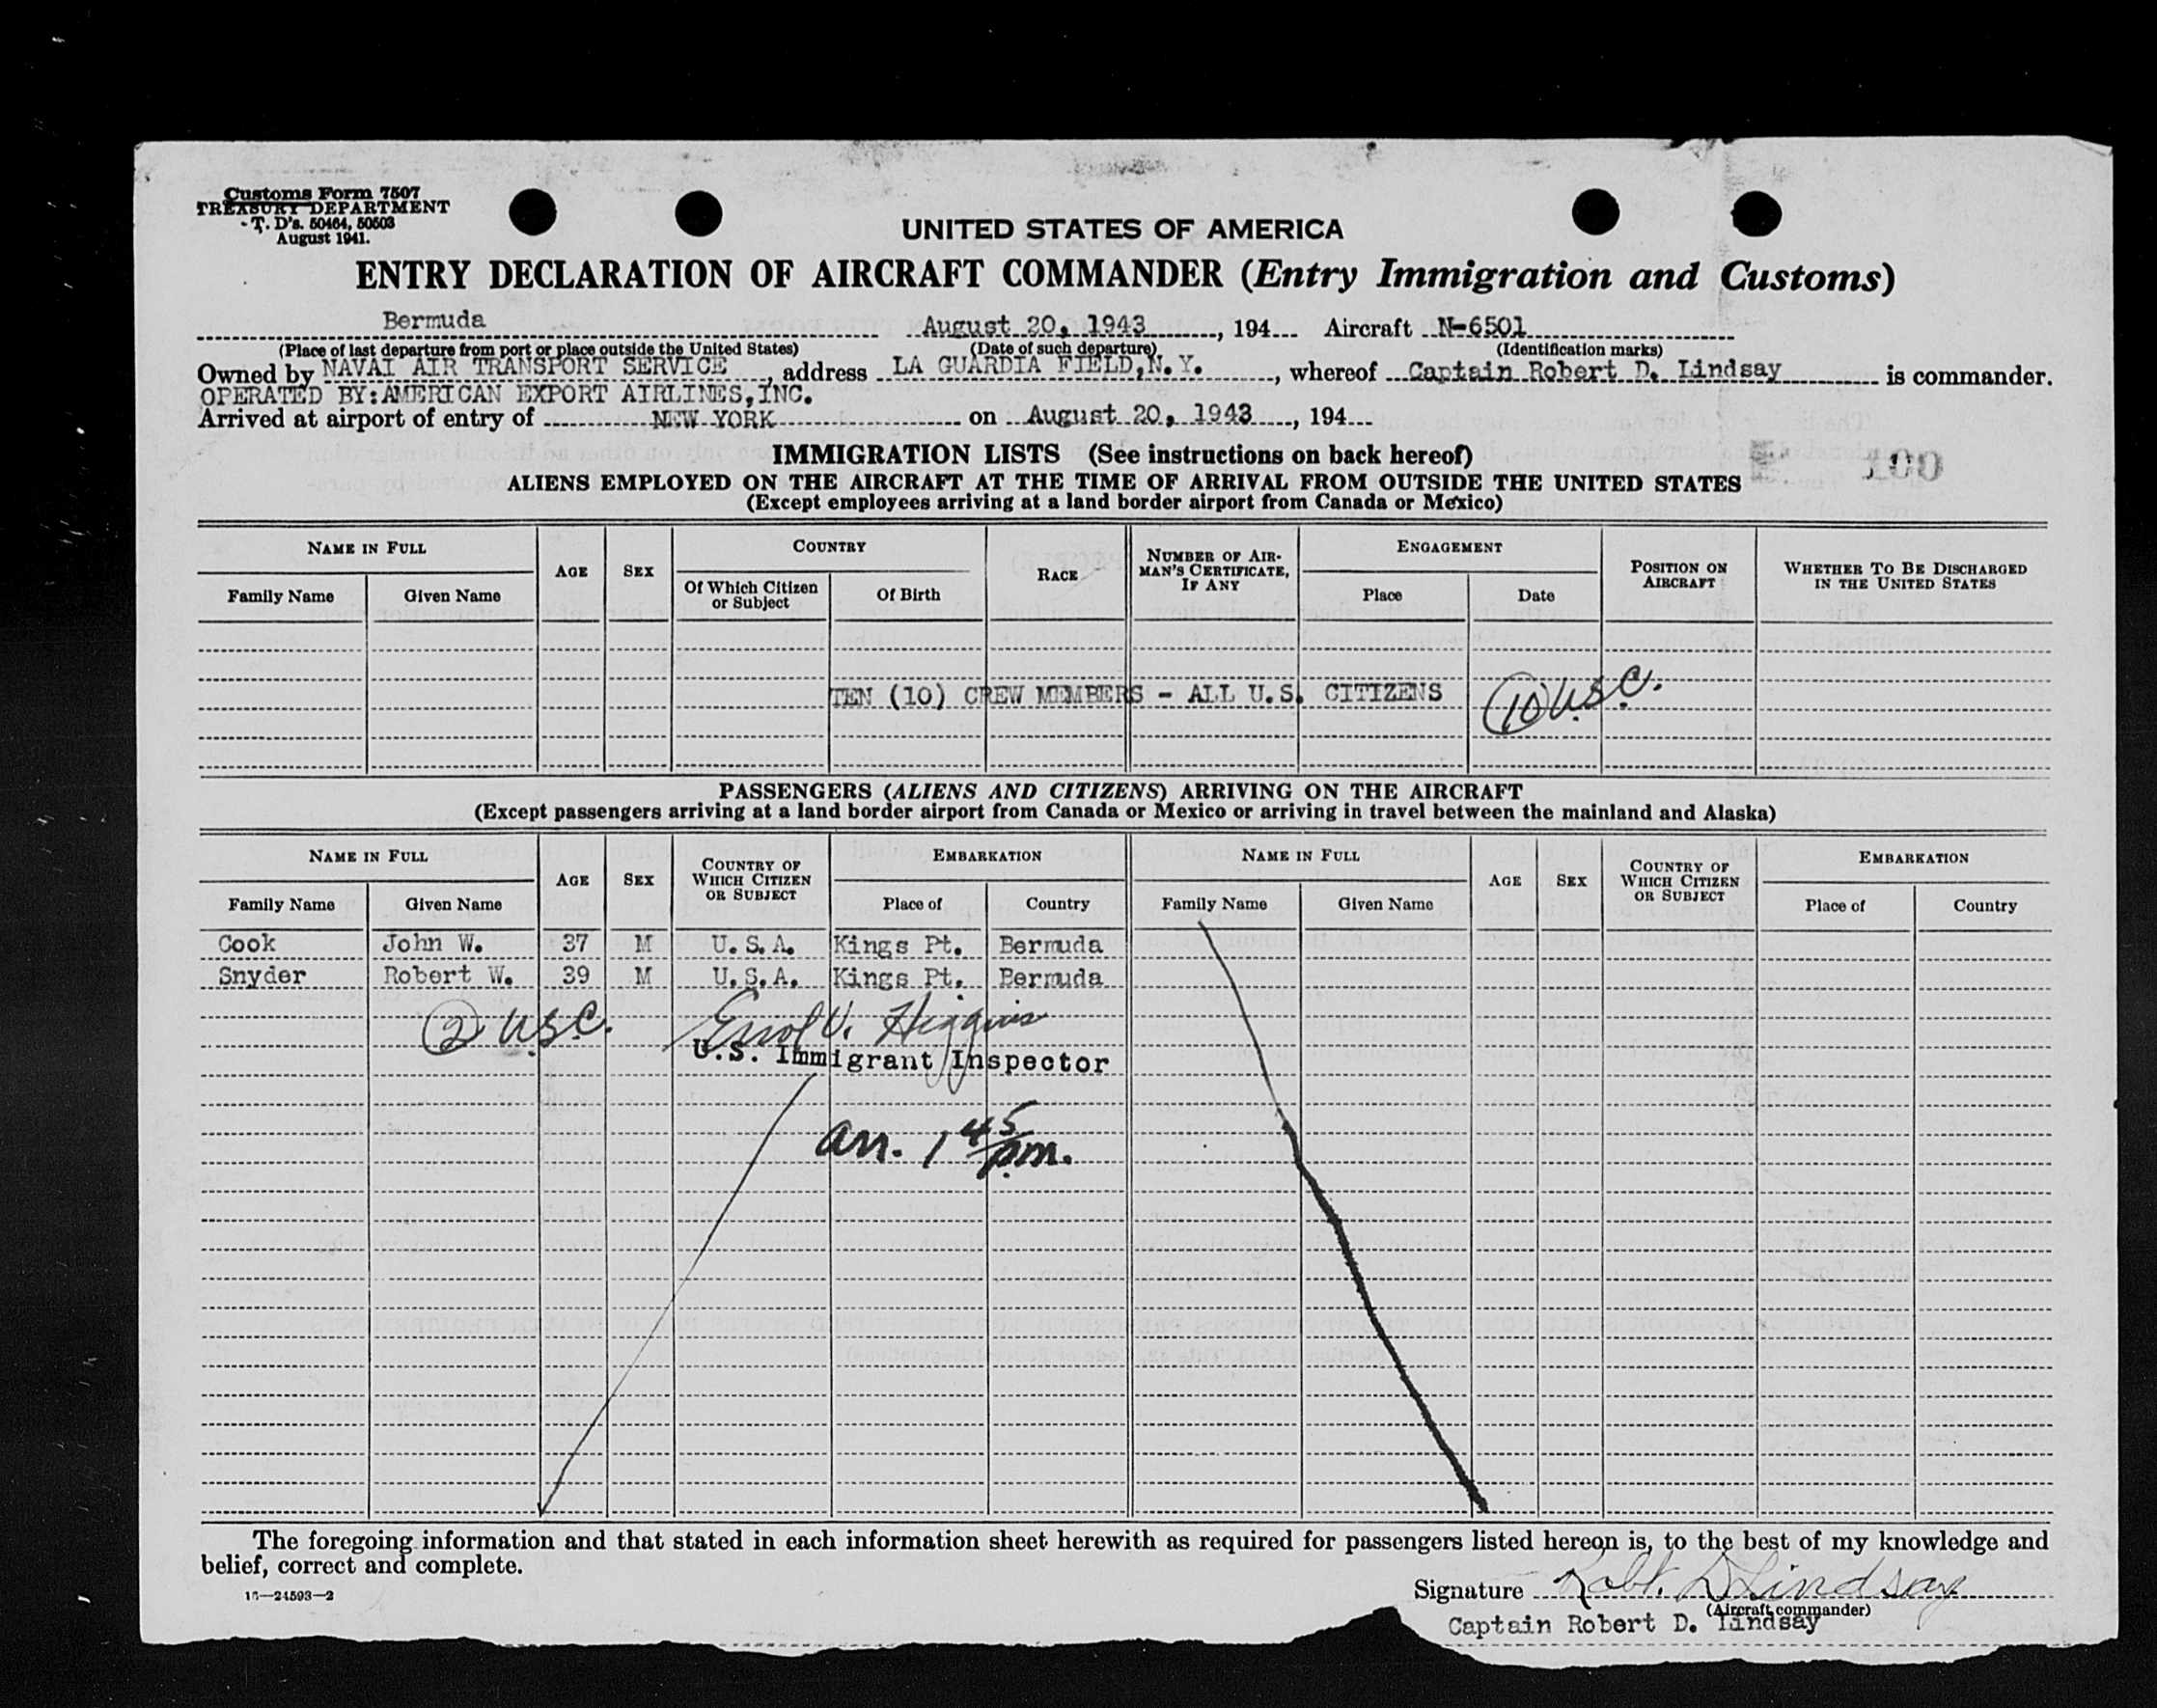 Customs Form 7507
TREASURY DEPARTMENT
T. D's. 50464, 50503
August 1941.
UNITED STATES OF AMERICA
ENTRY DECLARATION OF AIRCRAFT COMMANDER (Entry Immigration and Customs)
Bermuda August 20, 1943, 194 Aircraft N-6501
(Place of last departure from port or place outside the United States) (Date of such departure) (Identification marks)
Owned by NAVAL AIR TRANSPORT SERVICE, address LA GUARDIA FIELD, N.Y., whereof Captain Robert D. Lindsay is commander.
OPERATED BY:AMERICAN EXPORT AIRLINES, INC.
Arrived at airport of entry of NEW YORK on August 20, 1943, 194
IMMIGRATION LISTS (See instructions on back hereof)
100
ALIENS EMPLOYED ON THE AIRCRAFT AT THE TIME OF ARRIVAL FROM OUTSIDE THE UNITED STATES
(Except employees arriving at a land border airport from Canada or Mexico)
NAME IN FULL AGE SEX COUNTRY RACE NUMBER OF AIRMAN'S CERTIFICATE, IF ANY ENGAGEMENT POSITION ON AIRCRAFT WHETHER TO BE DISCHARGED IN THE UNITED STATES
Family Name Given Name Of Which Citizen or Subject Of Birth Place Date
TEN (10) CREW MEMBERS - ALL U.S. CITIZENS (10) U.S.C.
PASSENGERS (ALIENS AND CITIZENS) ARRIVING ON THE AIRCRAFT
(Except passengers arriving at a land border airport from Canada or Mexico or arriving in travel between the mainland and Alaska)
NAME IN FULL AGE SEX COUNTRY OF WHICH CITIZEN OR SUBJECT EMBARKATION NAME IN FULL AGE SEX COUNTRY OF WHICH CITIZEN OR SUBJECT EMBARKATION
Family Name Given Name Place of Country Family Name Given Name Place of Country
Cook John W. 37 M U.S.A. Kings Pt. Bermuda
Snyder Robert W. 39 M U.S.A. Kings Pt. Bermuda
(2) U.S.C. Errol V. Higgins
U.S. Immigrant Inspector
arr. 1 45 pm.
The foregoing information and that stated in each information sheet herewith as required for passengers listed hereon is, to the best of my knowledge and
belief, correct and complete.
16—24593—2
Signature Robt. D Lindsay
(Aircraft commander)
Captain Robert D. Lindsay